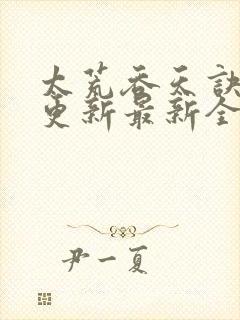 太荒吞天訣
更新最新全
尹一夏